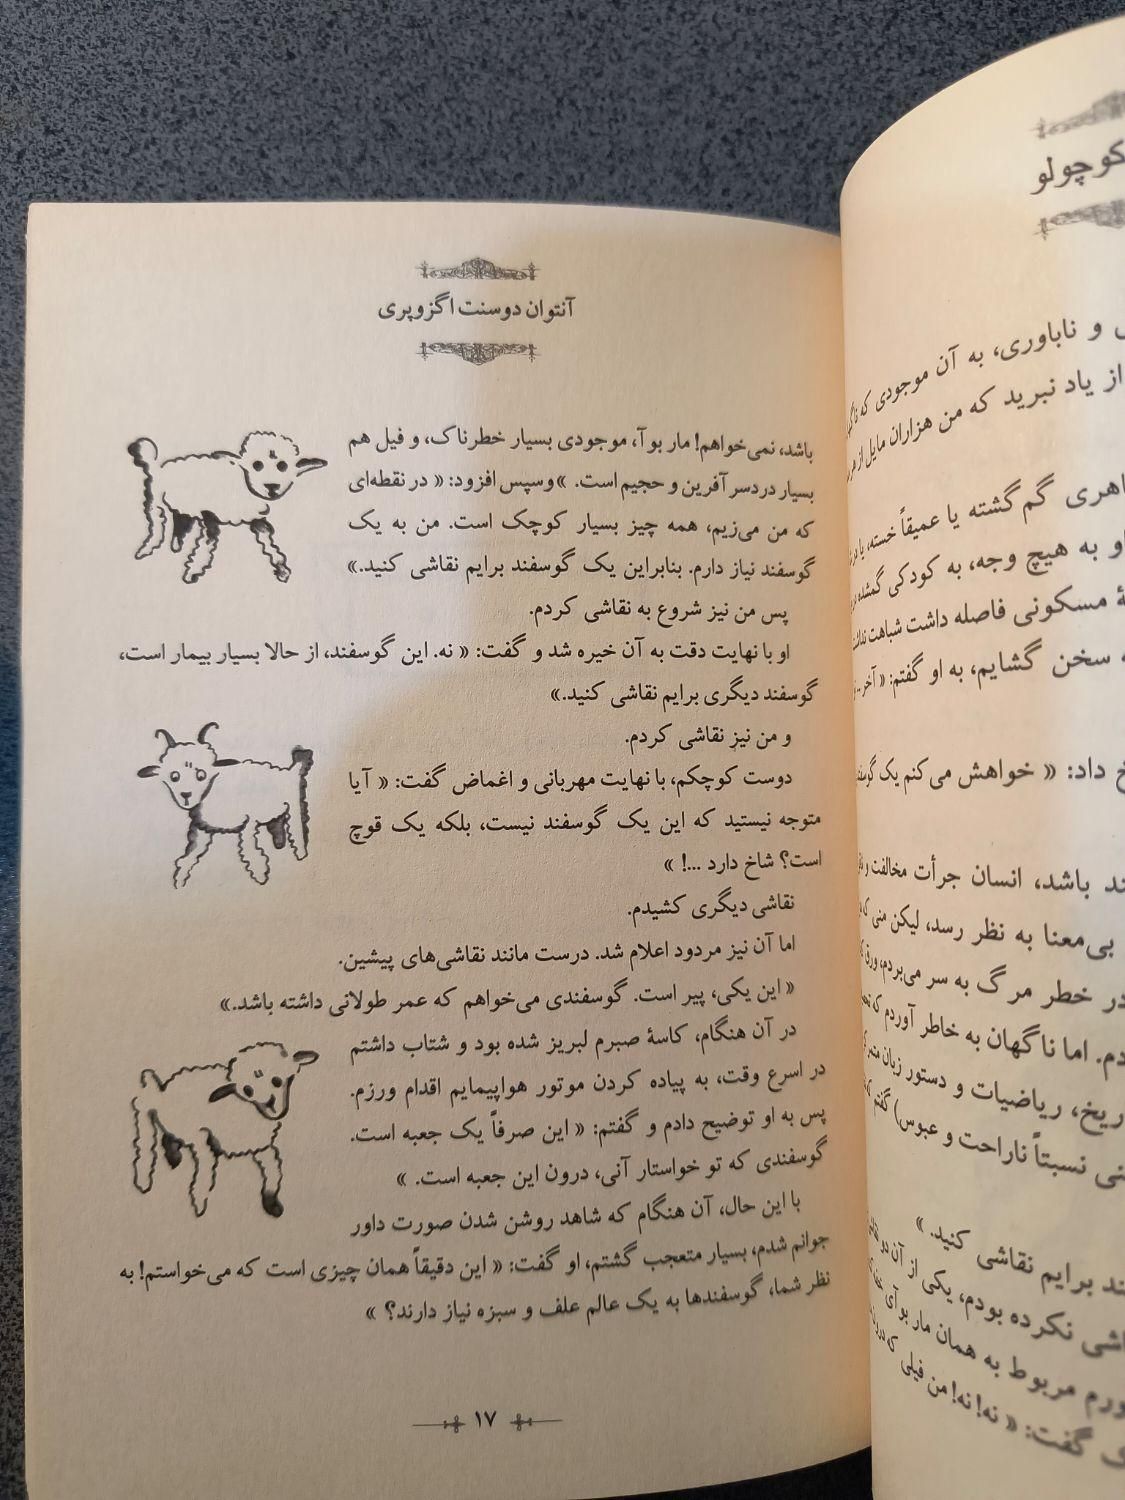 کوچولو
و ناباوری، به آن موجودی که
از یاد نبرید که من هزاران مایل از هر
گم گشته یا عمیقاً خسته، یا
او به هیچ وجه، به کودکی گمشده
مسکونی فاصله داشت شباهت نداشت
سخن گشایم، به او گفتم: « آخر...
داد: « خواهش می کنم یک گوسفند
باشد، انسان جرأت مخالفت و
بی‌معنا به نظر رسد، لیکن منی که
در خطر مرگ به سر می‌بردم، ورق
اما ناگهان به خاطر آوردم که
ریاضیات و دستور زبان
نسبتاً ناراحت و عبوس) گفتم
برایم نقاشی کنید. »
نکرده بودم، یکی از آن دو
مربوط به همان مار بوآی
گفت: « نه! نه! من فیلی که درون
آنتوان دوسنت اگزوپری
باشد، نمی‌خواهم! مار بوآ، موجودی بسیار خطرناک، و فیل هم
بسیار دردسر آفرین و حجیم است. »وسپس افزود: « در نقطه‌ای
که من می‌زیم، همه چیز بسیار کوچک است. من به یک
گوسفند نیاز دارم. بنابراین یک گوسفند برایم نقاشی کنید.»
پس من نیز شروع به نقاشی کردم.
او با نهایت دقت به آن خیره شد و گفت: « نه. این گوسفند، از حالا بسیار بیمار است،
گوسفند دیگری برایم نقاشی کنید.»
و من نیز نقاشی کردم.
دوست کوچکم، با نهایت مهربانی و اغماض گفت: « آیا
متوجه نیستید که این یک گوسفند نیست، بلکه یک قوچ
است؟ شاخ دارد ...! »
نقاشی دیگری کشیدم.
اما آن نیز مردود اعلام شد. درست مانند نقاشی‌های پیشین.
« این یکی، پیر است. گوسفندی می‌خواهم که عمر طولانی داشته باشد.»
در آن هنگام، کاسهٔ صبرم لبریز شده بود و شتاب داشتم
در اسرع وقت، به پیاده کردن موتور هواپیمایم اقدام ورزم.
پس به او توضیح دادم و گفتم: « این صرفاً یک جعبه است.
گوسفندی که تو خواستار آنی، درون این جعبه است. »
با این حال، آن هنگام که شاهد روشن شدن صورت داور
جوانم شدم، بسیار متعجب گشتم، او گفت: « این دقیقاً همان چیزی است که می‌خواستم! به
نظر شما، گوسفندها به یک عالم علف و سبزه نیاز دارند؟ »
۱۷